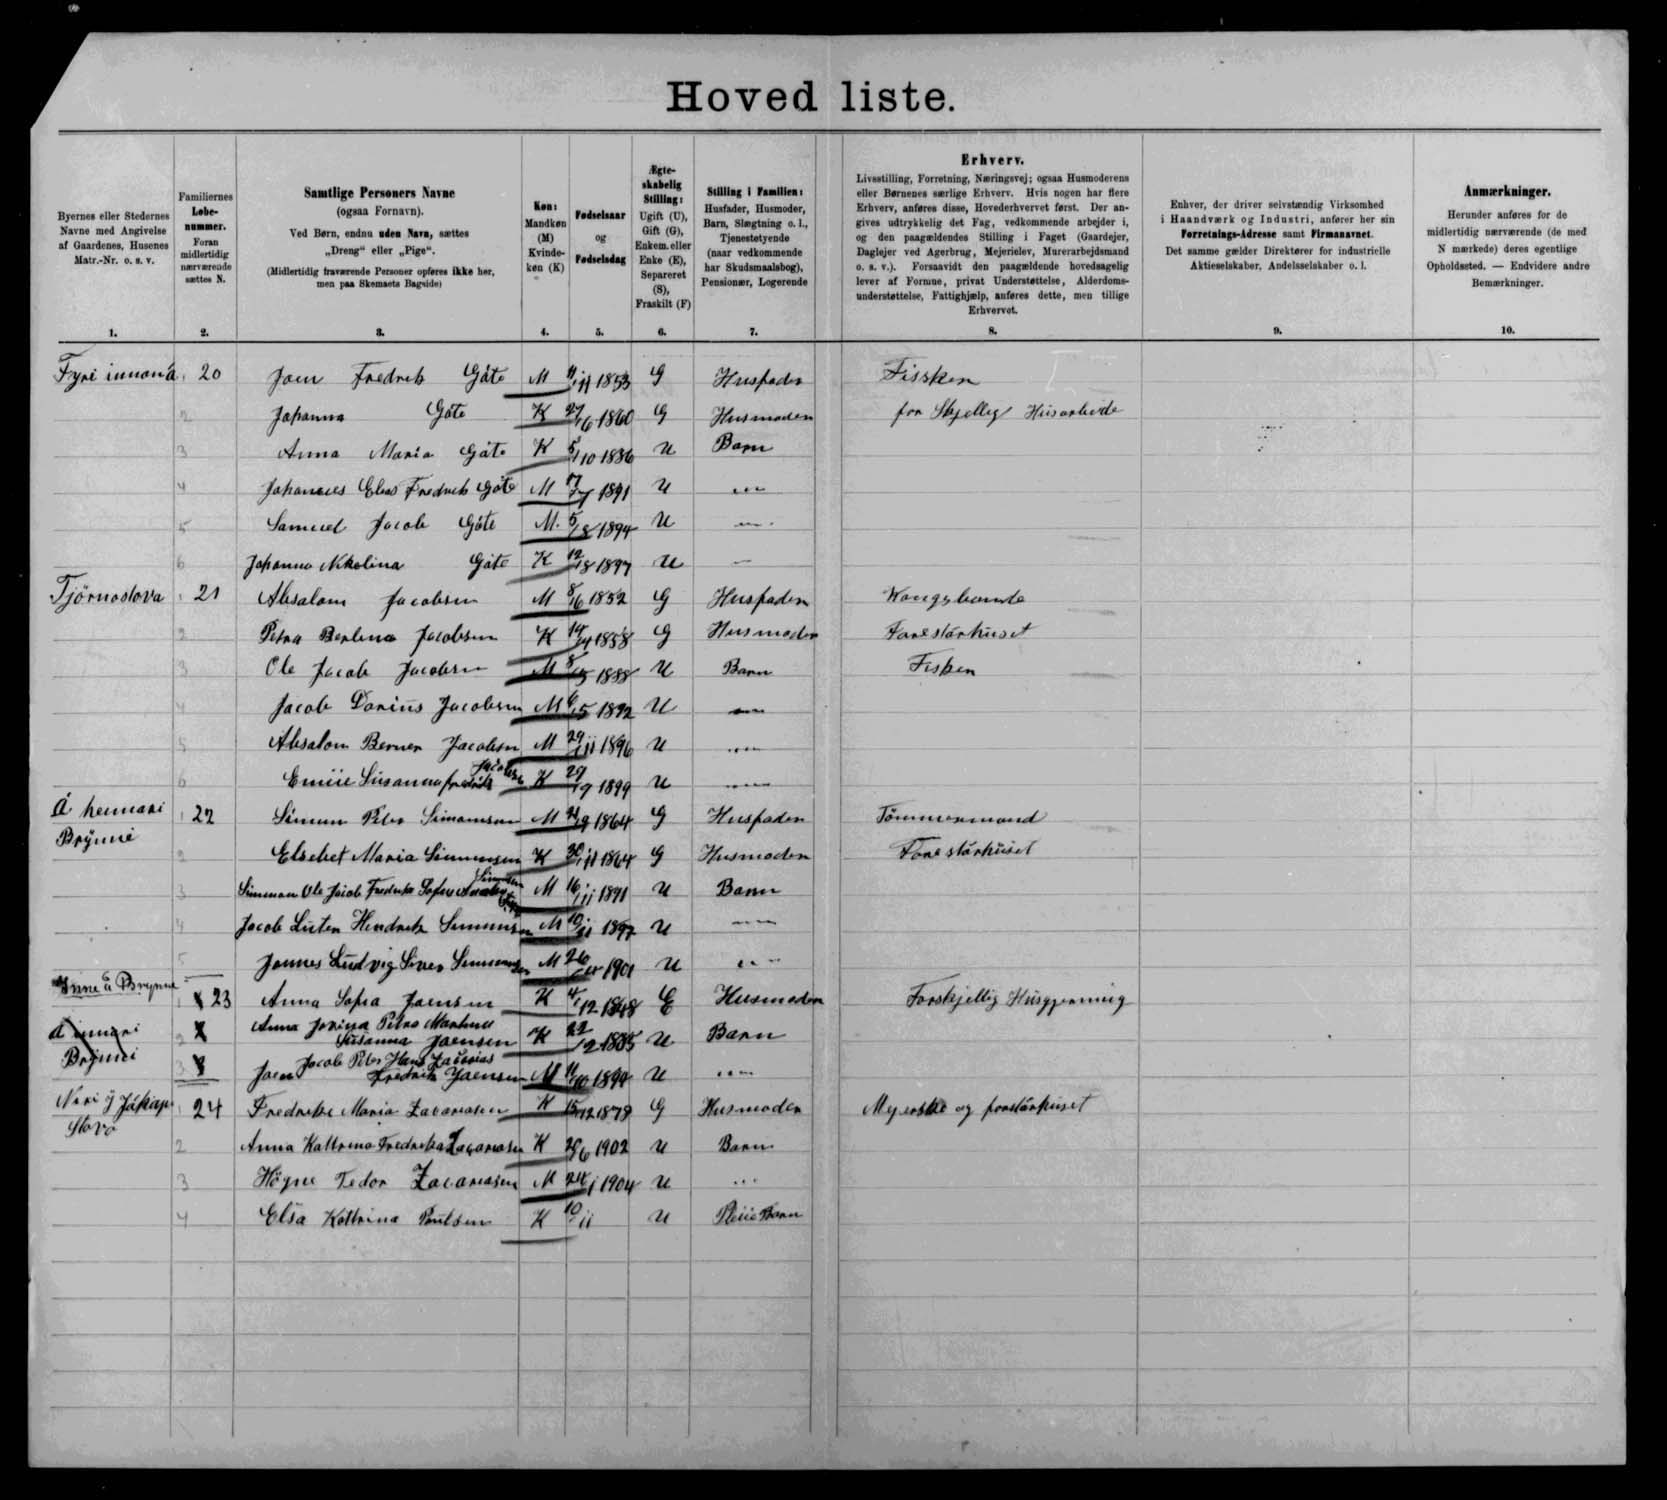 Hoved liste.
Byernes eller Stedernes
Navne med Angivelse
af Gaardenes, Husenes
Matr.-Nr. o. s. v.
1.
Familiernes
Løbe-
nummer.
Foran
midlertidig
nærværende
sættes N.
2.
Samtlige Personers Navne
(ogsaa Fornavn).
Ved Børn, endnu uden Navn, sættes
„Dreng“ eller „Pige“.
(Midlertidig fraværende Personer opføres ikke her,
men paa Skemaets Bagside)
3.
Køn:
Mandkøn
(M)
Kvinde-
køn (K)
4.
Fødselsaar
og
Fødselsdag
5.
Ægte-
skabelig
Stilling:
Ugift (U),
Gift (G),
Enkem. eller
Enke (E),
Separeret
(S),
Fraskilt (F)
6.
Stilling i Familien:
Husfader, Husmoder,
Barn, Slægtning o. l.,
Tjenestetyende
(naar vedkommende
har Skudsmaalsbog),
Pensionær, Logerende
7.
Erhverv.
Livsstilling, Forretning, Næringsvej; ogsaa Husmoderens
eller Børnenes særlige Erhverv. Hvis nogen har flere
Erhverv, anføres disse, Hovederhvervet først. Der an-
gives udtrykkelig det Fag, vedkommende arbejder i,
og den paagældendes Stilling i Faget (Gaardejer,
Daglejer ved Agerbrug, Mejerielev, Murerarbejdsmand
o. s. v.). Forsaavidt den paagældende hovedsagelig
lever af Formue, privat Understøttelse, Alderdoms-
understøttelse, Fattighjælp, anføres dette, men tillige
Erhvervet.
8.
Enhver, der driver selvstændig Virksomhed
i Haandværk og Industri, anfører her sin
Forretnings-Adresse samt Firmanavnet.
Det samme gælder Direktører for industrielle
Aktieselskaber, Andelsselskaber o. l.
9.
Anmærkninger.
Herunder anføres for de
midlertidig nærværende (de med
N mærkede) deres egentlige
Opholdssted. — Endvidere andre
Bemærkninger.
10.
Fyri innaná 1 20 Joen Fredrik Góte M 11/11 1853 G Husfader Fissker
2 Johanna Góte K 27/6 1860 G Husmoder for Skjellig Husarbeide
3 Anna Maria Góte K 5/10 1886 U Barn
4 Johannes Elias Fredrik Góte M 17/7 1891 U
5 Samuel Jacob Góte M. 5/8 1894 U
6 Johanna Nikolina Góte K 12/8 1897 U
Tjörnostova 1 21 Absalom Jacobsen M 8/6 1852 G Husfader Kongsbonde
2 Petra Berlina Jacobsen K 14/4 1858 G Husmoder Forestårhuset
3 Ole Jacob Jacobsen M 8/5 1888 U Barn Fisker
4 Jacob Darius Jacobsen M 6/5 1892 U
5 Absalom Berner Jacobsen M 29/11 1896 U
6 Emiie Susanna Jacobsen K 29/9 1899 U
Á heimari
Brýnni 1 22 Simun Peter Simonsen M 1864 G Husfader Tömmermand
2 Elsebet Maria Simunsen K 30/11 1864 G Husmoder Forestårhuset
3 Simmun Ole Jacob Fredrik Simunsen M 16/11 1891 U Barn
4 Jacob Luter Hendrik Simunsen M 10/11 1897 U
5 Joannes Ludvig Siver Simunsen M 26 1901 U
Inne á Brynne 1 23 Anna Sofia Joensen K 4/12 1848 E Husmoder Forskjellig Húsgjerning
á innari
Brýnni 2 Anna Petra
Susanna Joensen K 22/2 1885 U Barn
3 Jacob Peter Hans Zacarias
Joen Fredrik Joensen M 11/10 1899 U
Niri y Jákups
Stovo 1 24 Fredrikke Maria Zacariasen K 15/12 1878 G Husmoder Mejerske og forstårhuset
2 Anna Kattrina Fredrikka Zacariasen K 26/6 1902 U Barn
3 Högne Tedor Zacariasen M 24/1 1904 U
4 Elsa Kattrina Poulsen K 10/11 U Pleiie Barn